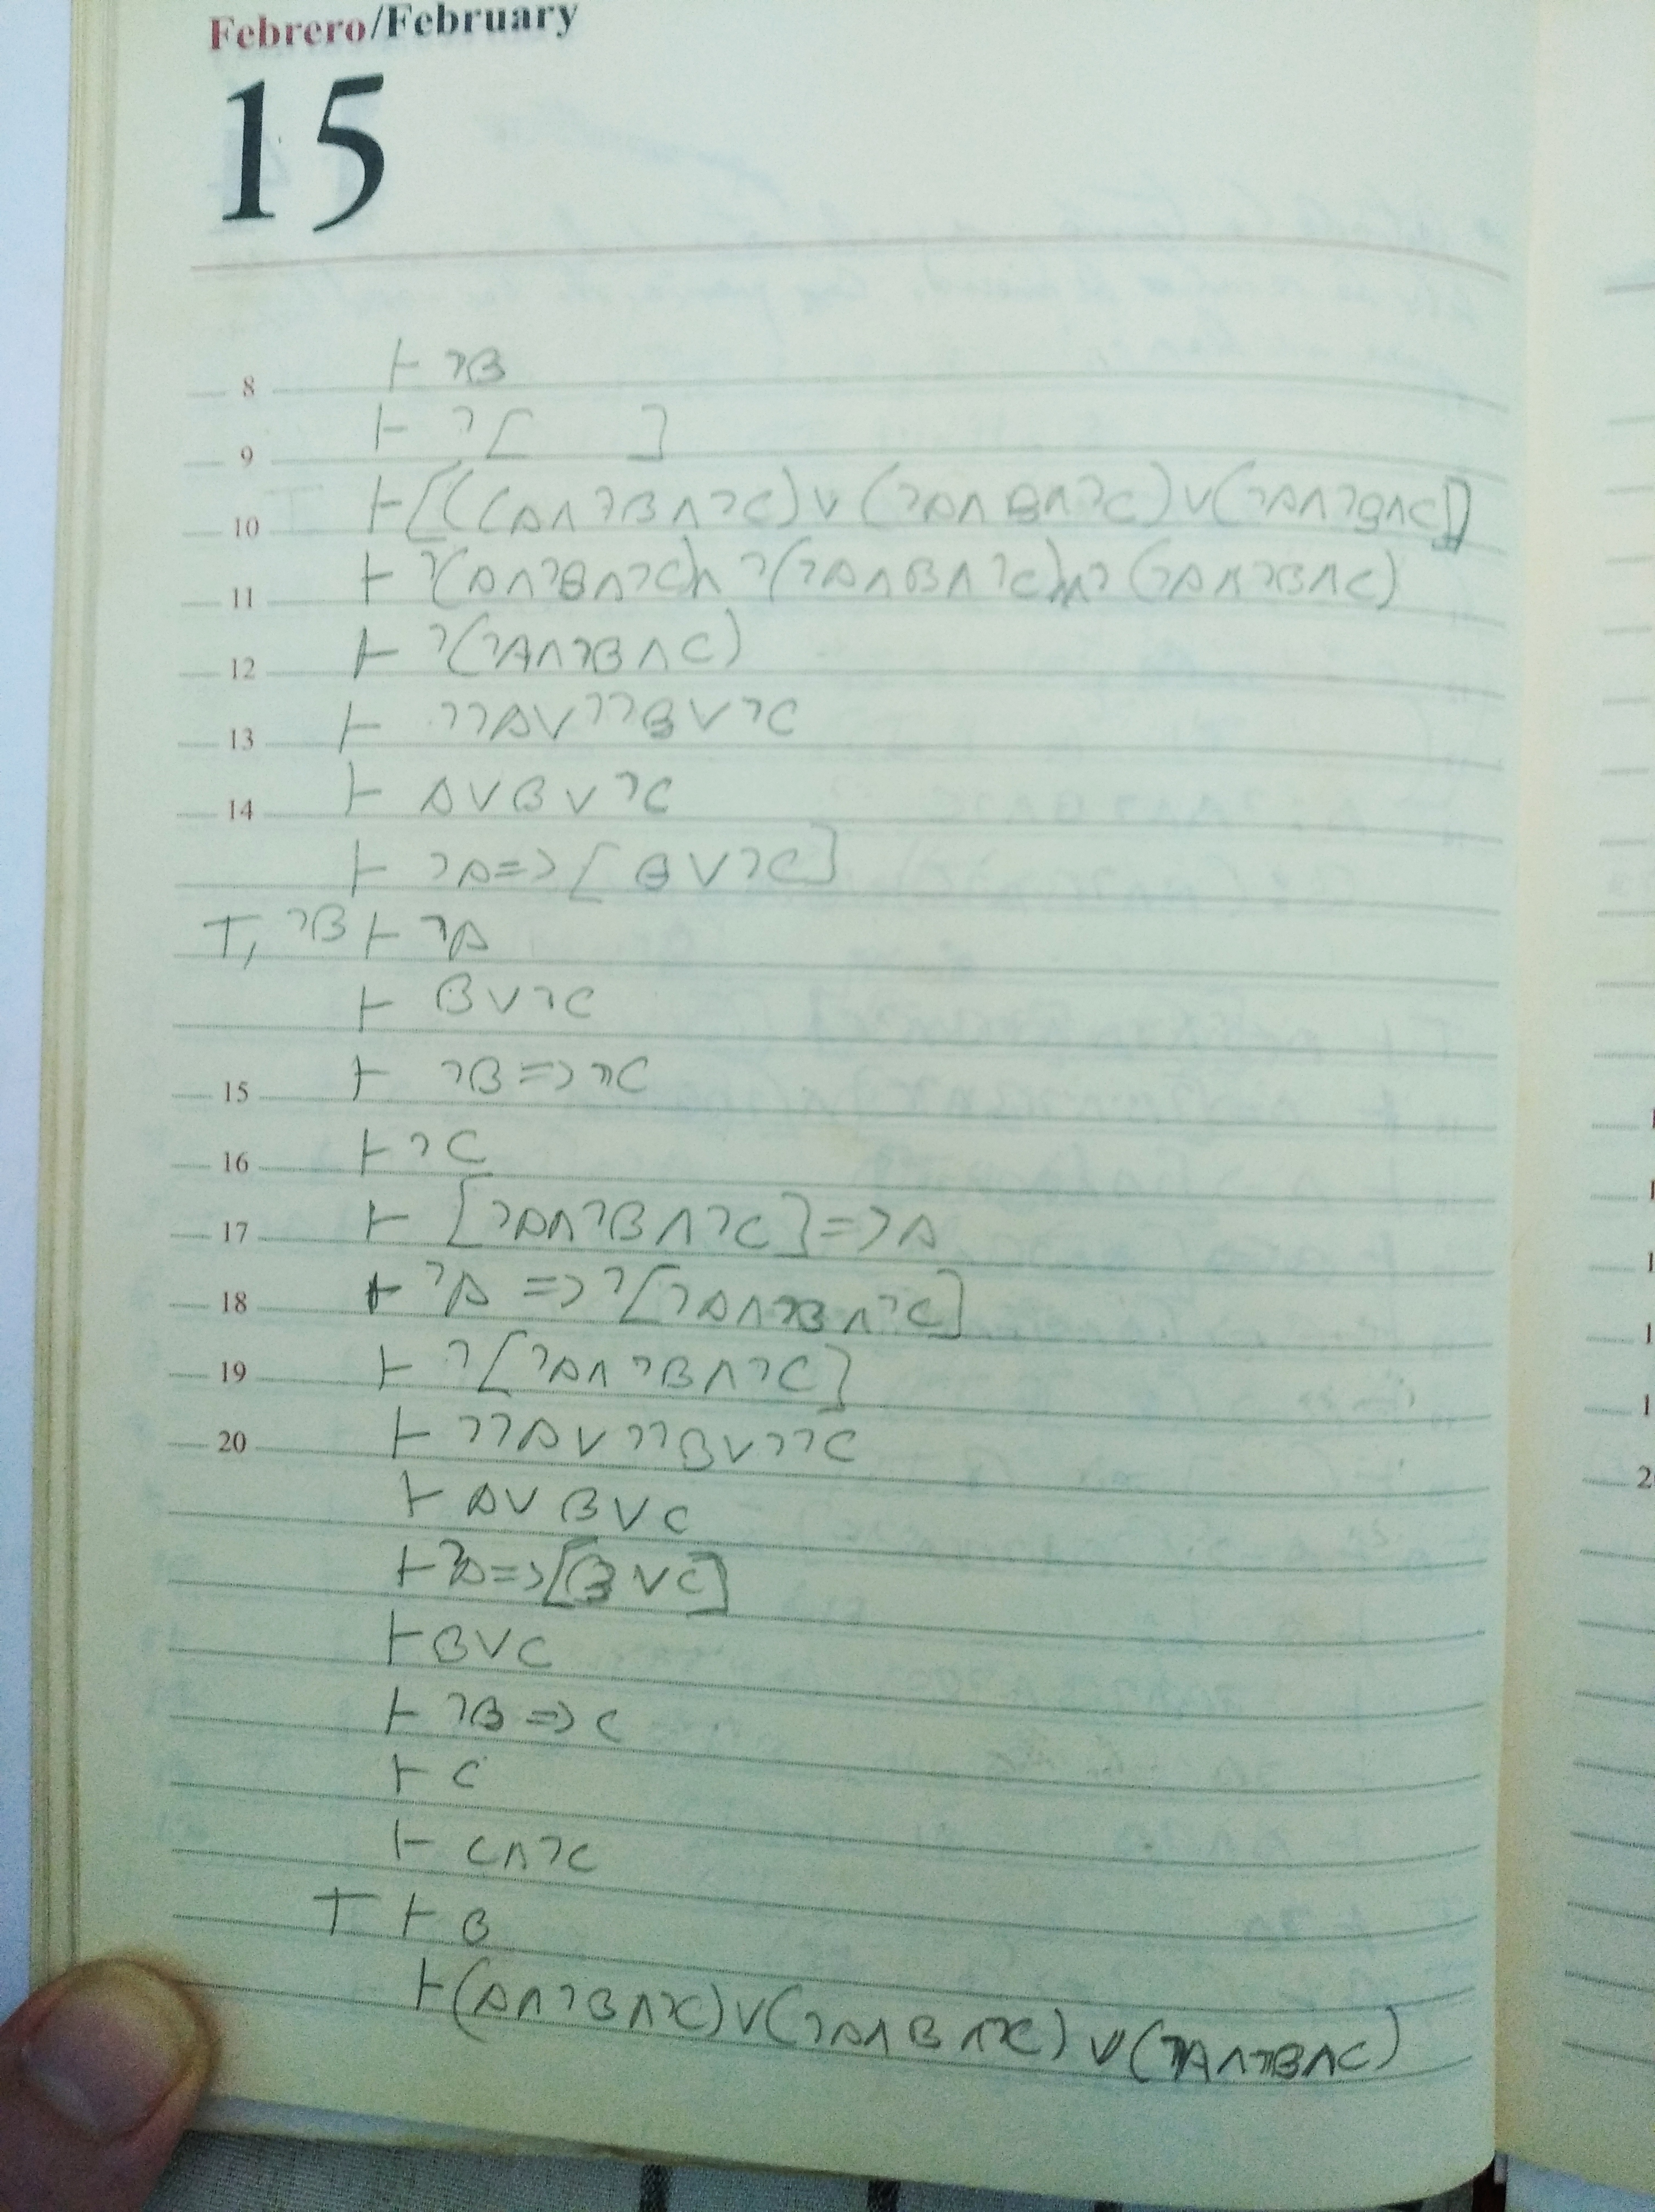 Febrero/February
15
8 ⊢ ¬B
9 ⊢ ¬[ ]
10 ⊢ [((A∧¬B∧¬C)∨(¬A∧B∧¬C)∨(¬A∧¬B∧C)]
11 ⊢ ¬(A∧¬B∧¬C)∧¬(¬A∧B∧¬C)∧¬(¬A∧¬B∧C)
12 ⊢ ¬(¬A∧¬B∧C)
13 ⊢ ¬¬A∨¬¬B∨¬C
14 ⊢ A∨B∨¬C
⊢ ¬A=>[B∨¬C]
T, ¬B ⊢ ¬A
⊢ B∨¬C
15 ⊢ ¬B=>¬C
16 ⊢ ¬C
17 ⊢ [¬A∧¬B∧¬C]=>A
18 ⊢ ¬A=>¬[¬A∧¬B∧¬C]
19 ⊢ ¬[¬A∧¬B∧¬C]
20 ⊢ ¬¬A∨¬¬B∨¬¬C
⊢ A∨B∨C
⊢ ¬A=>[B∨C]
⊢ B∨C
⊢ ¬B=>C
⊢ C
⊢ C∧¬C
T ⊢ B
⊢ (A∧¬B∧¬C)∨(¬A∧B∧¬C)∨(¬A∧¬B∧C)